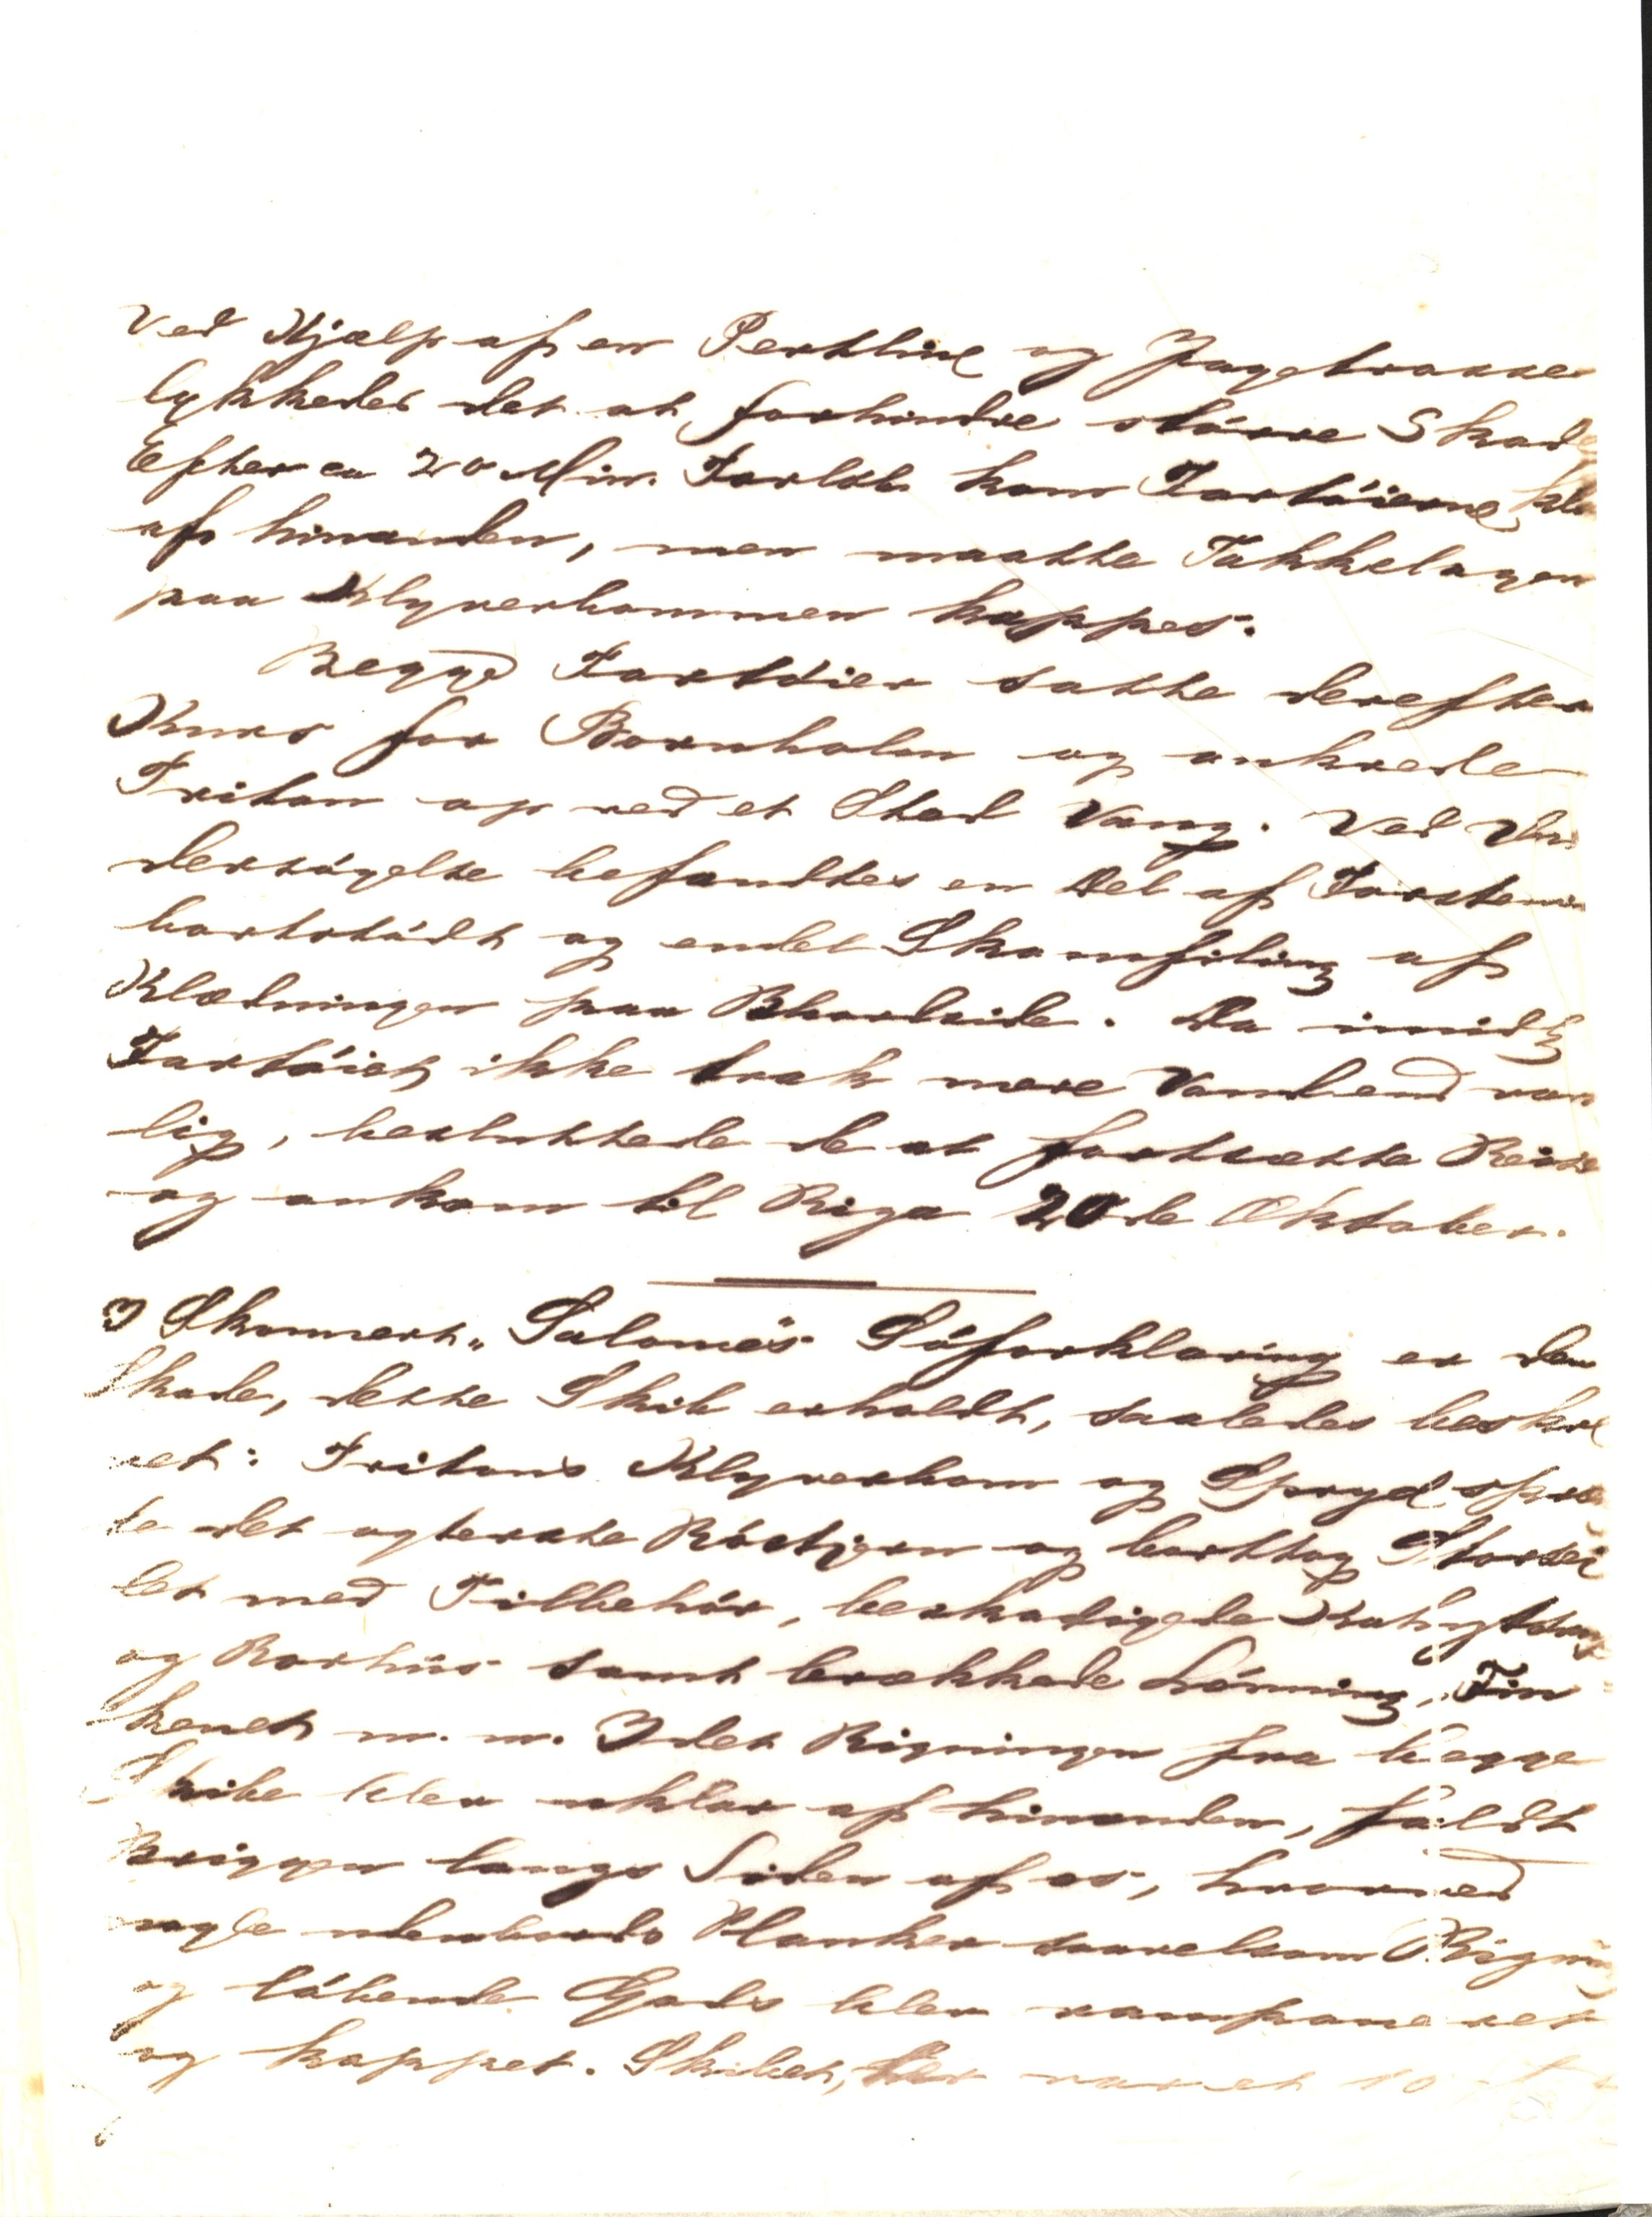 Ved Hjælp af en Pertline og Jagetrakker
lykkedes det at forhindre större Skade
Efter ca 20 Min. Forlöb kom Fartöierne kla
af hinanden, men maatte Takkelagen
paa Klyverbommen kappes.
Begge Fartöier satte derefter
Kurs for Bornholm og ankrede
Triton op ved et Sted Vang. Ved Un
dersögelse befandtes en Del af Forsteven
bortstödt og endel Skamfiling af
Klædningen paa B.bordside. Da imidl
Fartöiet ikke trak mere Vand end van
lig, besluttede de at fortsætte Reise
og ankom til Riga 20de Oktober.
I Skonnert „Salome's Söforklaring er den
Skade, dette Skib erholdt, saaledes beskre
vet: Tritons Klyverbom og Spryd spræ
te det agterste Röstjern og borttog Storsei
let med Tilbehör, beskadigede Kahytstrap
og Rorhus samt brækkede Lönning, Fin
kenet m. m. Idet Rigningen fra begge
Skibe blev uklar af hinanden, faldt
Briggen langs Siden af os, hvorved
nogle udenbords Planker saavelsom Rigning
og löbende Gods blev ramponeret
og kappet. Skibet, der var et 10